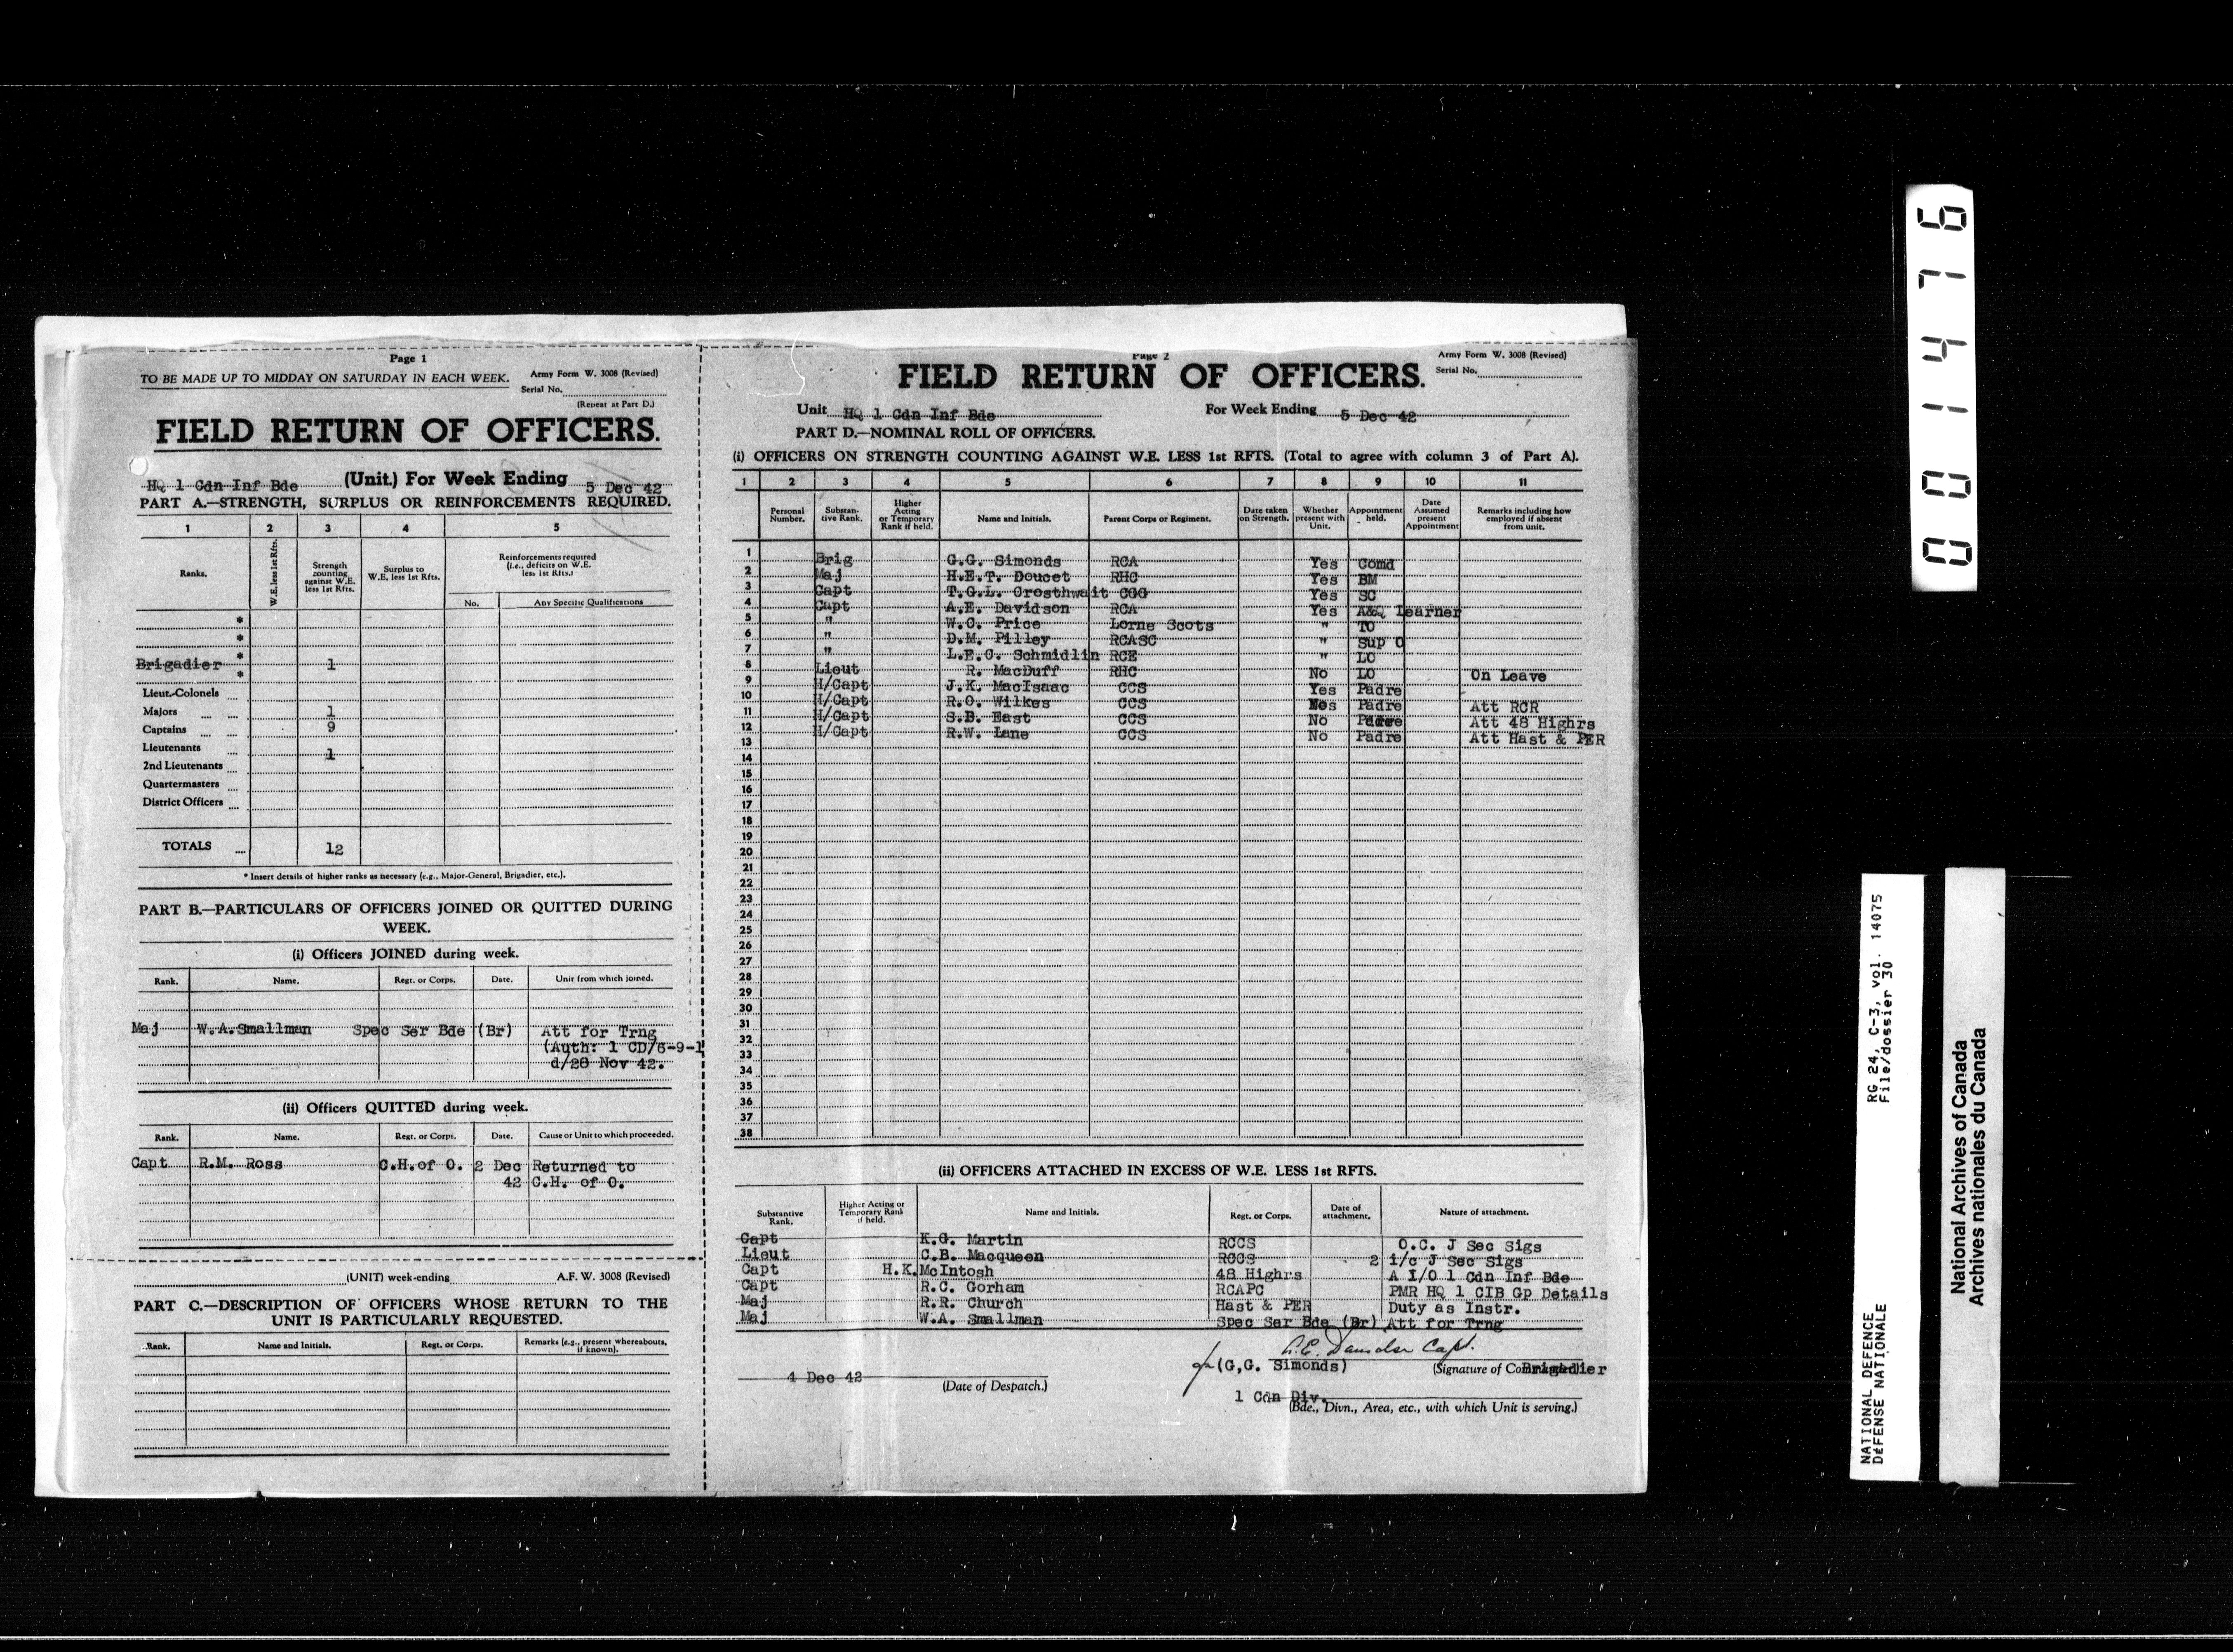 Page 1
TO BE MADE UP TO MIDDAY ON SATURDAY IN EACH WEEK.
Army Form W. 3008 (Revised)
Serial No.
(Repeat at Part D.)
FIELD RETURN OF OFFICERS.
HQ 1 Cdn Inf Bde (Unit.) For Week Ending 5 Dec 42
PART A.—STRENGTH, SURPLUS OR REINFORCEMENTS REQUIRED.
1 2 3 4 5
Ranks. W.E. less 1st Rfts. Strength counting against W.E. less 1st Rfts. Surplus to W.E. less 1st Rfts. Reinforcements required (i.e., deficits on W.E. less 1st Rfts.)
No. Any Specific Qualifications
*
*
*
Brigadier 1
*
Lieut.-Colonels ...
Majors ... ... 1
Captains ... ... 9
Lieutenants ... 1
2nd Lieutenants ...
Quartermasters ...
District Officers ...
TOTALS .... 12
* Insert details of higher ranks as necessary (e.g., Major-General, Brigadier, etc.).
PART B.—PARTICULARS OF OFFICERS JOINED OR QUITTED DURING
WEEK.
(i) Officers JOINED during week.
Rank. Name. Regt. or Corps. Date. Unit from which joined.
Maj W.A.Smallman Spec Ser Bde (Br) Att for Trng
(Auth: 1 CD/6-9-1
d/28 Nov 42.
(ii) Officers QUITTED during week.
Rank. Name. Regt. or Corps. Date. Cause or Unit to which proceeded.
Capt R.M. Ross C.H.of O. 2 Dec Returned to
42 C.H. of O.
(UNIT) week-ending A.F. W. 3008 (Revised)
PART C.—DESCRIPTION OF OFFICERS WHOSE RETURN TO THE
UNIT IS PARTICULARLY REQUESTED.
Rank. Name and Initials. Regt. or Corps. Remarks (e.g., present whereabouts, if known).
Page 2
Army Form W. 3008 (Revised)
Serial No.
FIELD RETURN OF OFFICERS.
Unit HQ 1 Cdn Inf Bde For Week Ending 5 Dec 42
PART D.—NOMINAL ROLL OF OFFICERS.
(i) OFFICERS ON STRENGTH COUNTING AGAINST W.E. LESS 1st RFTS. (Total to agree with column 3 of Part A).
1 2 3 4 5 6 7 8 9 10 11
Personal Number. Substantive Rank. Higher Acting or Temporary Rank if held. Name and Initials. Parent Corps or Regiment. Date taken on Strength. Whether present with Unit. Appointment held. Date Assumed present Appointment Remarks including how employed if absent from unit.
1 Brig G.G. Simonds RCA Yes Comd
2 Maj H.E.T. Doucet RHC Yes BM
3 Capt T.G.L. Crosthwait CGG Yes SC
4 Capt A.E. Davidson RCA Yes A&Q Learner
5 " W.C. Price Lorne Scots " TO
6 " D.M. Pilley RCASC " Sup O
7 " L.E.C. Schmidlin RCE " LO
8 Lieut R. MacDuff RHC No LO On Leave
9 H/Capt J.K. MacIsaac CCS Yes Padre
10 H/Capt R.O. Wilkes CCS Padre Att RCR
11 H/Capt S.B. East CCS No Padre Att 48 Highrs
12 H/Capt R.W. Lane CCS No Padre Att Hast & PER
13
14
15
16
17
18
19
20
21
22
23
24
25
26
27
28
29
30
31
32
33
34
35
36
37
38
(ii) OFFICERS ATTACHED IN EXCESS OF W.E. LESS 1st RFTS.
Substantive Rank. Higher Acting or Temporary Rank if held. Name and Initials. Regt. or Corps. Date of attachment. Nature of attachment.
Capt K.G. Martin RCCS O.C. J Sec Sigs
Lieut C.B. Macqueen RCCS 2 i/c J Sec Sigs
Capt H.K. McIntosh 48 Highrs A I/O 1 Cdn Inf Bde
Capt R.C. Gorham RCAPC PMR HQ 1 CIB Gp Details
Maj R.R. Church Hast & PER Duty as Instr.
Maj W.A. Smallman Spec Ser Bde (Br) Att for Trng
A.E. Davidson Capt.
for (G,G. Simonds) (Signature of Commander) Brigadier
4 Dec 42
(Date of Despatch.)
1 Cdn Div.
(Bde., Divn., Area, etc., with which Unit is serving.)
001476
RG 24, C-3, vol. 14075
File/dossier 30
NATIONAL DEFENCE
DÉFENSE NATIONALE
National Archives of Canada
Archives nationales du Canada